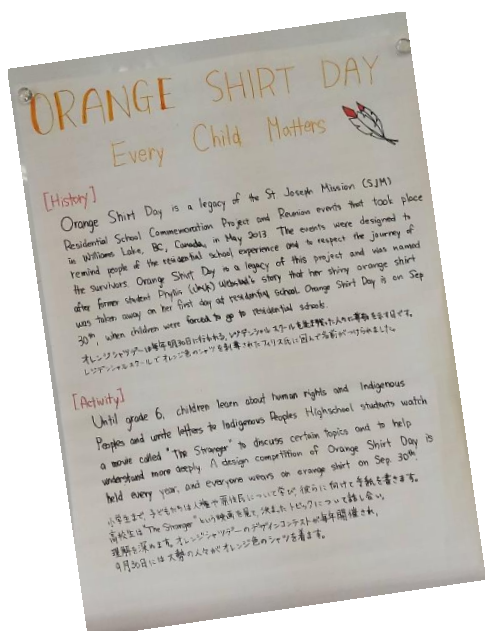 ORANGE SHIRT DAY
Every Child Matters
[History]
Orange Shirt Day is a legacy of the St Joseph Mission (SJM)
Residential School Commemoration Project and Reunion events that took place
in Williams Lake, BC, Canada, in May 2013 The events were designed to
remind people of the residential school experience and to respect the journey of
the survivors. Orange Shirt Day is a legacy of this project and was named
after former student Phyllis (Jack) Webstad's story that her shiny orange shirt
was taken away on her first day at residential school. Orange Shirt Day is on Sep
30th, when children were forced to go to residential schools.
オレンジシャツデーは毎年9月30日に行われる、レジデンシャルスクールを
レジデンシャルスクールでオレンジ色のシャツを剥奪されたフィリス氏に因んで名前がつけられました。
[Activity]
Until grade 6, children learn about human rights and Indigenous
Peoples and write letters to Indigenous Peoples Highschool students watch
a movie called "The Stranger" to discuss certain topics and to help
understand more deeply. A design competition of Orange Shirt Day is
held every year, and everyone wears an orange shirt on Sep. 30th.
小学生まで、子どもたちは人権や原住民について学び、彼らに向けて手紙を書きます。
高校生は"The Stranger"という映画を見て、決まったトピックについて話し合い、
理解を深めます。オレンジシャツデーのデザインコンテストが毎年開催され、
9月30日には大勢の人々がオレンジ色のシャツを着ます。